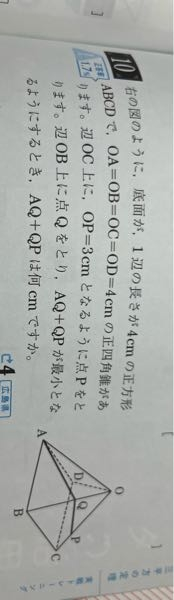 10
正答率
1.7%
右の図のように，底面が，1辺の長さが4cmの正方形
ABCDで，OA=OB=OC=OD=4cmの正四角錐があ
ります。辺OC上に，OP=3cmとなるように点Pをと
ります。辺OB上に点Qをとり，AQ+QPが最小とな
るようにするとき，AQ+QPは何cmですか。
4
広島県
O
D
Q
P
A
B
C
三平方の定理
実戦トレーニング